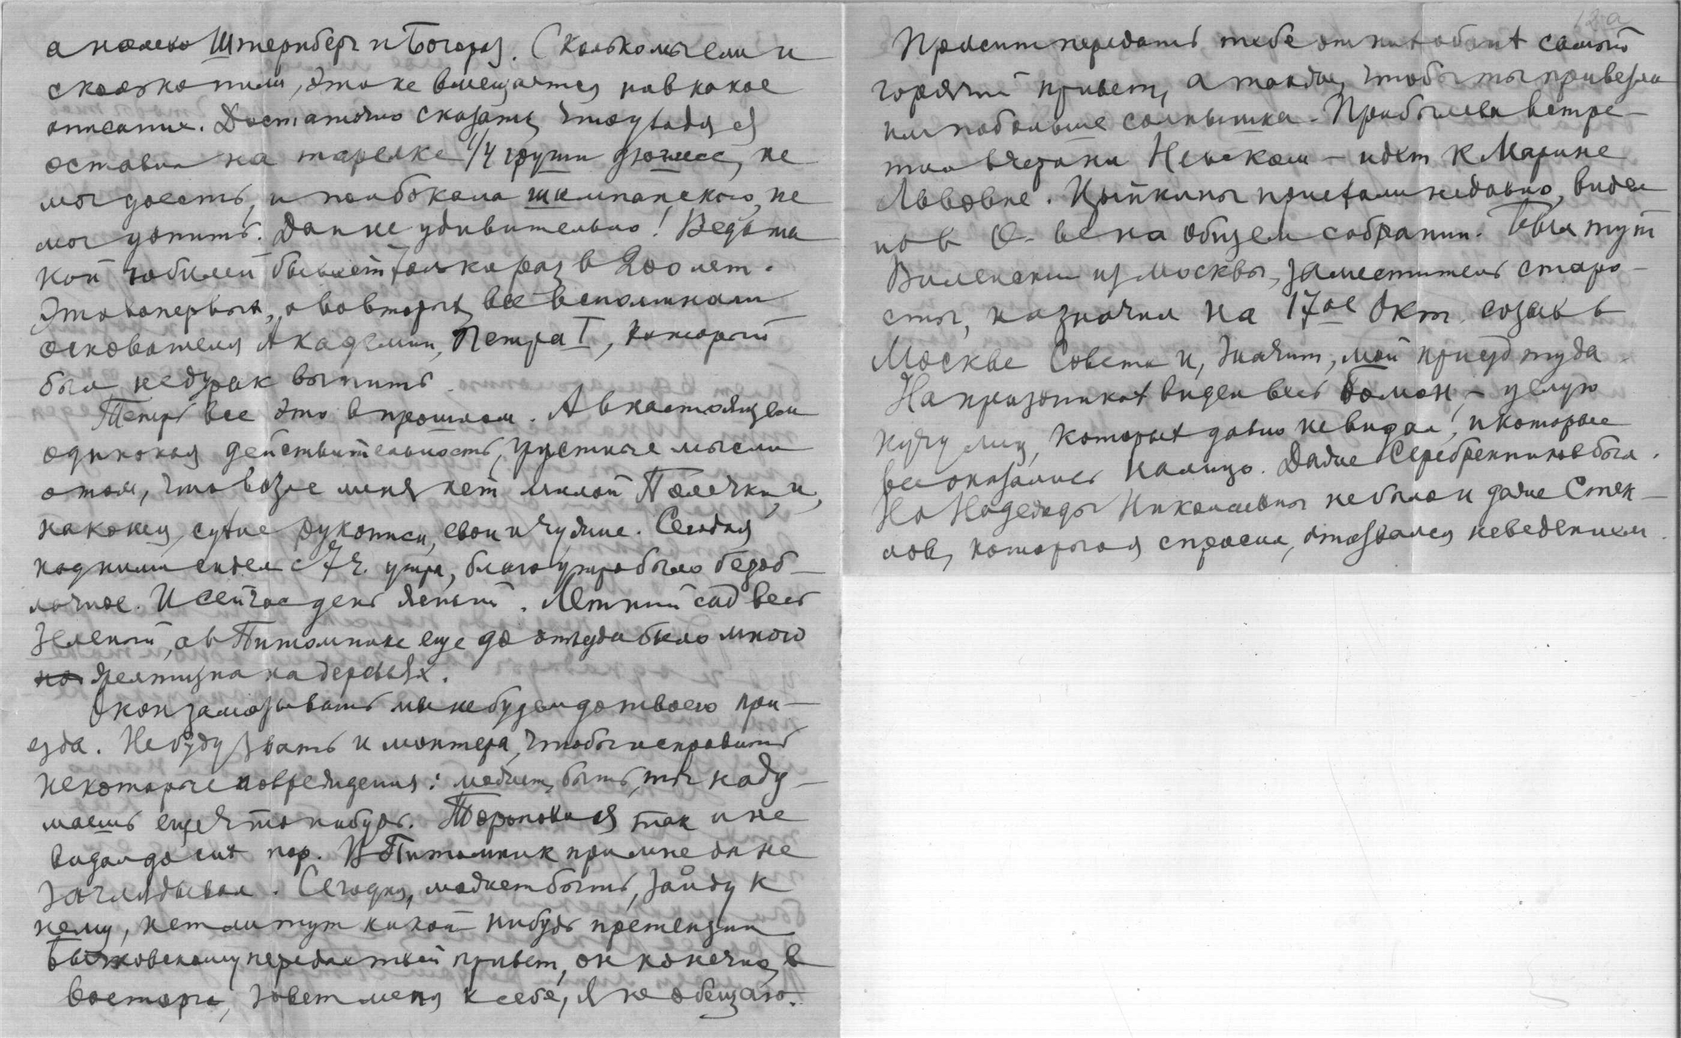 а налево Штернберг и Богораз. Сколько мы ели и
сколько пили, это не вмещается ни в какое
описание. Достаточно сказать, что уходя я
оставил на тарелке 1/4 груши дюшесс, не
мог доесть, и полбокала шампанского, не
мог допить. Да и не удивительно! Ведь та
кой юбилей бывает только раз в 200 лет.
Это вопервых, а вовторых, все вспоминали
основателя Академии, Петра I, который
был не дурак выпить.
Теперь все это в прошлом. А в настоящем
одинокая действительность, грустные мысли
о том, что возле меня нет милой Полечки, и,
наконец, сухие рукописи, свои и чужие. Сегодня
над ними сидел с 7 ч. утра, благо утро было безоб-
лачное. И сейчас день ясный. Летний сад весь
зеленый, а в Питомнике еще до отъезда было много
желтизны на деревьях.
Окон замазывать мы не будем до твоего при-
езда. Не буду звать и монтера, чтобы исправить
некоторые повреждения: может быть, ты наду-
маешь еще что нибудь. я так и не
видал до сих пор. В Питомник при мне он не
заглядывал. Сегодня, может быть, зайду к
нему, нет ли тут какой нибудь претензии
передал твой привет, он конечно, в
восторге, зовет меня к себе, я не обещаю.
Просит передать тебе от них обоих самый
горячий привет, а также, чтобы ты привезла
им побольше солнышка. встре-
тил вчера на Невском – идет к Марине
Львовне. Цыпкины приехали недавно, видел
их в О-ве на общем собрании. Был тут
Виленский из Москвы, заместитель старо-
сты, назначил на 17ое Окт. созыв в
Москве Совета и, значит, мой приезд туда.
На праздниках видел весь бомонд, – целую
кучу лиц, которых давно не видал, и которые
все оказались налицо. Даже Серебренников был.
Но Надежды Николаевны не было и даже Стек-
лов, которого я спросил, отозвался неведением.